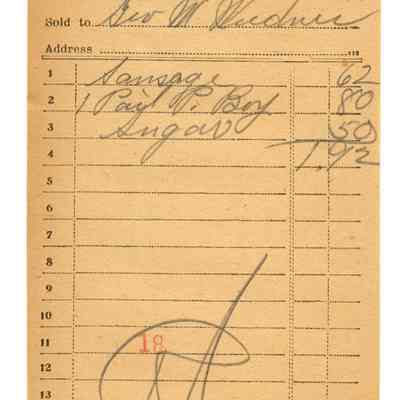 Sold to Geo W Weidner
Address
1 Sausage 62
2 1 Pail P. Boy 80
3 Sugar 50
4 1.92
5
6
7
8
9
10
11 18
12
13